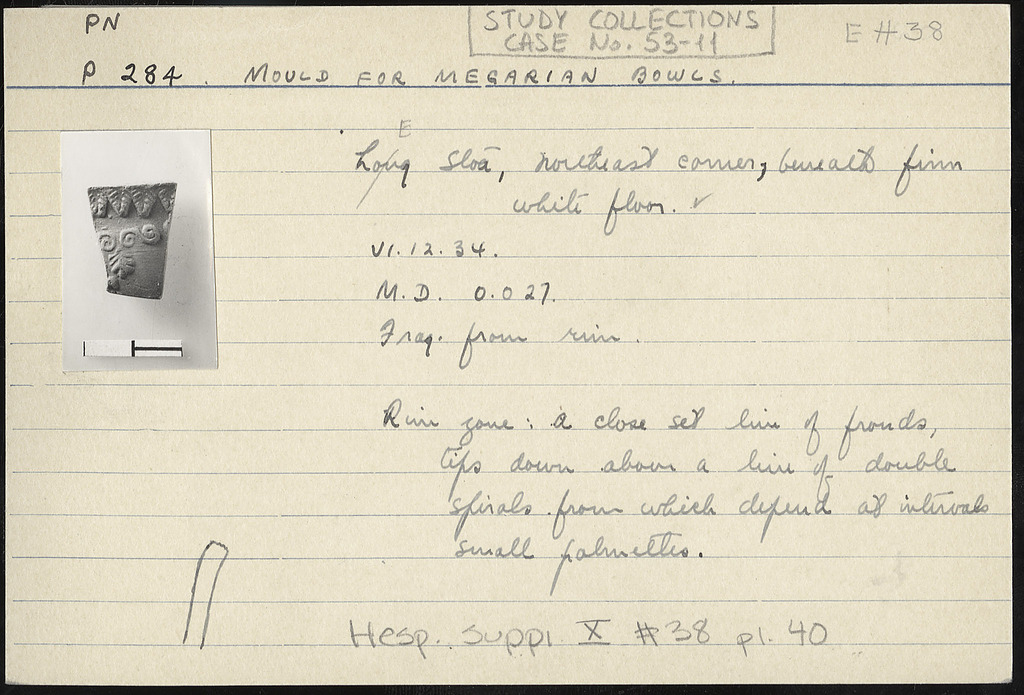 PN
STUDY COLLECTIONS
CASE No. 53-11
E #38
P 284. MOULD FOR MEGARIAN BOWLS.
E
Long Stoa, northeast corner, beneath firm
white floor. ✓
VI.12.34.
M.D. 0.027.
Frag. from rim.
Rim zone: a close set line of fronds,
tips down above a line of double
spirals from which depend at intervals
small palmettes.
Hesp. Suppl. X #38 pl. 40